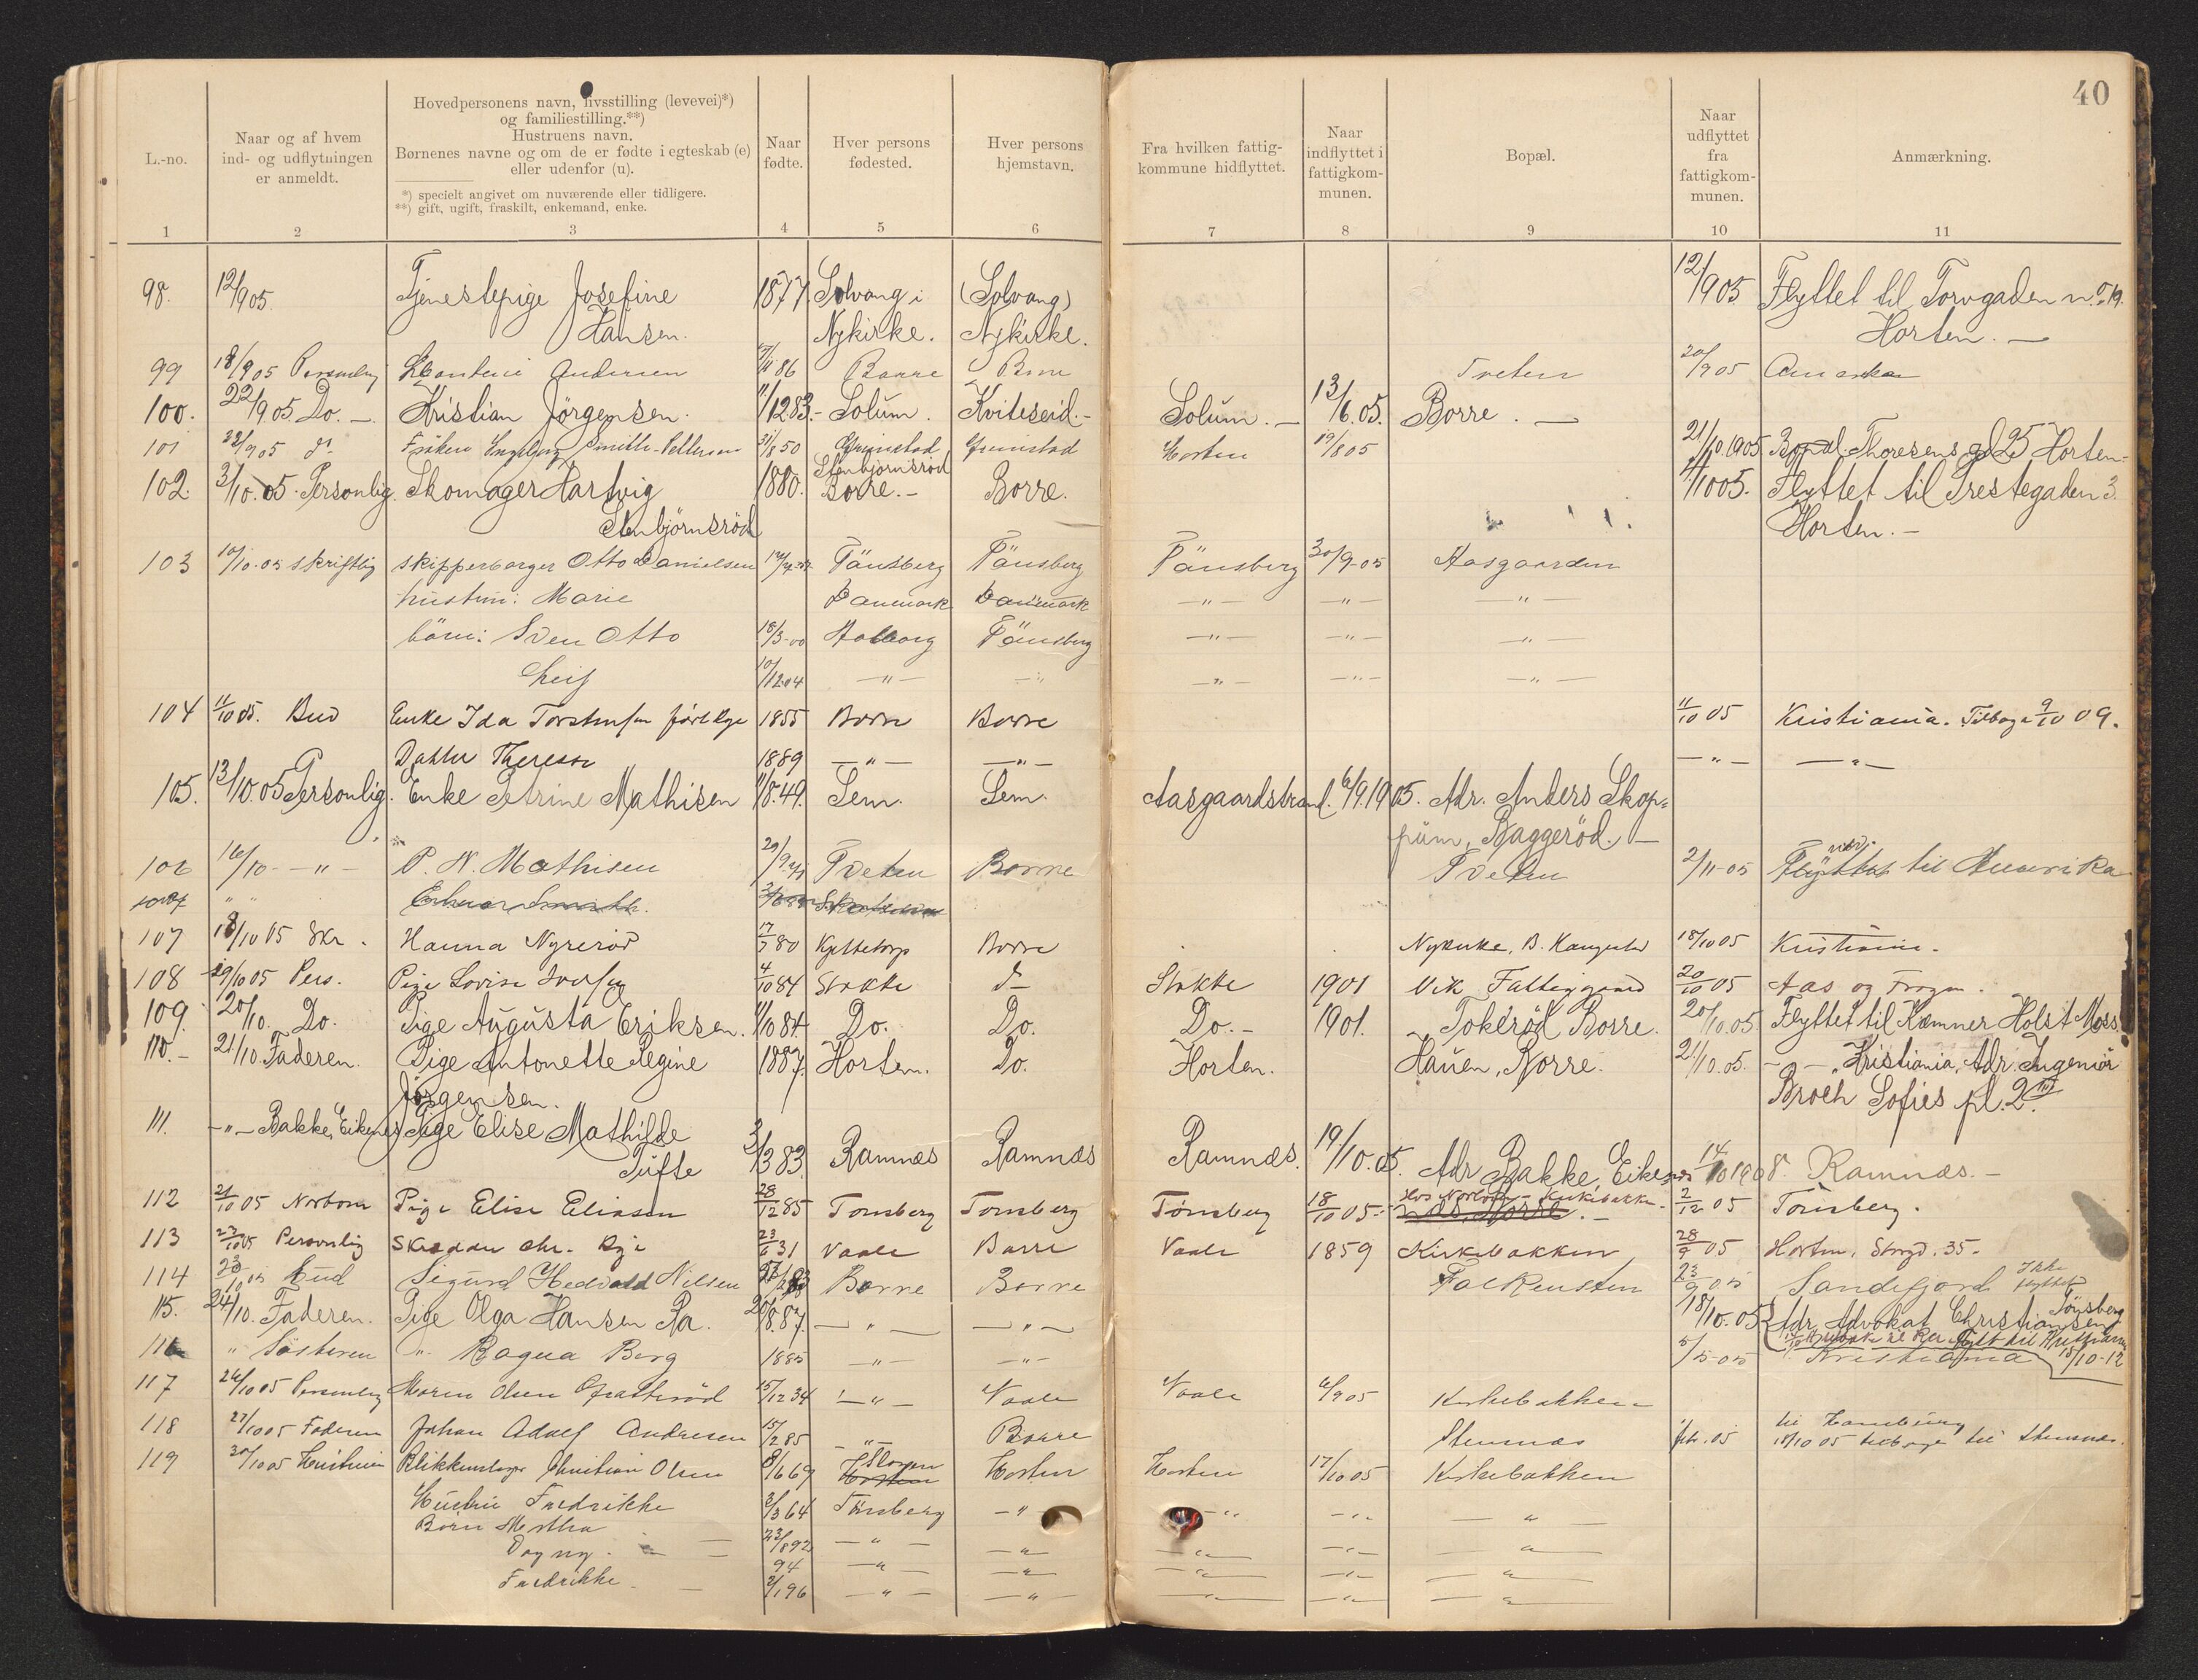 40
L.-no.
Naar og af hvem ind- og udflytningen er anmeldt.
Hovedpersonens navn, livsstilling (levevei)*) og familiestilling.**)
Hustruens navn.
Børnenes navne og om de er fødte i egteskab (e) eller udenfor (u).
*) specielt angivet om nuværende eller tidligere.
**) gift, ugift, fraskilt, enkemand, enke.
Naar fødte.
Hver persons fødested.
Hver persons hjemstavn.
Fra hvilken fattigkommune hidflyttet.
Naar indflyttet i fattigkommunen.
Bopæl.
Naar udflyttet fra fattigkommunen.
Anmærkning.
1 2 3 4 5 6 7 8 9 10 11
98. 12/9 05. Tjenestepige Josefine 1877. Solvang i (Solvang) 12/9 05 Flyttet til Torvgaden no. 19.
Hansen. Nykirke. Nykirke. Horten. —
99 18/9 05 Personlig Andersen 86 Borre Borre Tveten 20/9 05 Amerika
100. 22/9 05. Do. — Kristian Jörgensen. 11/12 83.- Solum. Kviteseid.- Solum. — 13/6. 05. Borre. —
101 22/9 05 do Frøken Ingeborg Smith-Pettersen 31/8 50 Grimstad Grimstad Horten 19/8 05 21/10. 1905 Bopæl. Thoresens gd 25 Horten-
102. 3/10. 05. Personlig. Skomager Hartvig 1880. Stenbjörnsröd Borre.- Borre. 4/10 05. Flyttet til Prestegaden 3.
Stenbjörnsröd Horten.-
103 10/10-05 skriftlig skipperborger Otto Danielsen Tönsberg Tönsberg Tönsberg 30/9-05 Aasgaarden
hustru: Marie Danmark Danmark — " — — " — — " —
börn: Sven Otto 18/3-00 Aalborg Tönsberg — " — — " — — " —
Leif 10/12 04 — " — — " — — " — — " — — " —
104 11/10 05. Bud Enke Ida Torstensen 1855 Borre Borre 11/10 05 Kristiania. Tilbage 9/10 09.
Datter Therese 1889 — " — — " — — " — — " —
105. 13/10. 05 Personlig. Enke Petrine Mathisen 11/8. 49. Sem. Sem. Aasgaardstrand. 6/9. 1905. Adr. Anders Skop=
pum, Baggeröd. —
106 16/10 - — " — P. N. Mathisen Tveten Borre Tveten 2/11-05 Flyttet til Amerika
107 18/10 05 Skr. Hanna Nyreröd 17/7 80 Borre Nykirke, B. 18/10 05 Kristiania.
108 19/10 05 Pers. Pige Lovise 4/10 84 Stokke do Stokke 1901 Vik Fattiggaard 20/10 05 Aas og
109. 20/10. Do. Pige Augusta Eriksen. 11/10 84. Do. Do. Do. - 1901. Tokeröd Borre. 20/10. 05. Flyttet til Kæmner Holst Moss.
110.- 21/10. Faderen. Pige Antonette Regine 1887. Horten. Do. Horten. Hauen, Borre. 21/10. 05. - " - Kristiania, Adr. Ingeniör
Jörgensen. Broch Sofies pl. 2 III.
111. - " - Bakke, Eikenes Pige Elise Mathilde
Tufte 3/3 83. Ramnæs Ramnæs Ramnæs. 19/10. 05. Adr Bakke, Eikenes 14/10 1908. Ramnæs.-
112 21/10 05 Norbom Pige Elise Eliasen 28/12 85 Tönsberg Tönsberg Tönsberg 18/10 05 hos Norbom - Kirkebakken. 2/12 05 Tönsberg.
113 23/10 05 Personlig Skrædder Chr. 23/6 31 Vaale Borre Vaale 1859 Kirkebakken 28/9 05 Horten, Storgd. 35.
114 23/10 05 Bud Sigurd Hedvald Nilsen Borre Borre Falkensten 23/9 05 Sandefjord Ikke flyttet
115. 24/10. Faderen. Pige Olga Hansen Ra. 20/8. 87. — " — — " — 18/10. 05 Adr. Advokat Christiansen Tönsberg
116 " Søsteren " Ragna Berg 1885 — " — — " — Kristiania 15/10-12
117 26/10 05 Personlig Maren Olsen 15/12 34 — " — Vaale Vaale 6/9 05 Kirkebakken
118 27/10 05 Faderen Johan Adolf Andresen 15/2 85 — " — Borre Stensnæs febr. 05 til Hamburg
18/10 05 tilbage til Stensnæs.
119 30/10 05 Hustruen Blikkenslager Christian Olsen 8/6 69 Skopum Horten Horten Horten 17/10 05 Kirkebakken
Hustru Fredrikke 3/3 64 Tönsberg — " — — " — — " — — " —
Börn Martha 23/8 92 — " — — " — — " — — " — — " —
Dagny. 94 — " — — " — — " — — " — — " —
Fredrikke 2/1 96 — " — — " — — " — — " — — " —